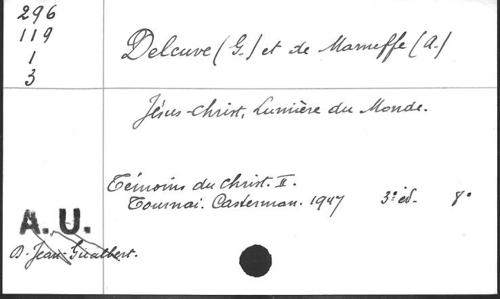 296
119
1
3
Delcuve (G.) et de Marneffe (A.)
Jésus-Christ, Lumière du Monde.
Témoins du Christ. II.
Tournai. Casterman. 1947 3e éd. 8°
A.U.
D. Jean-Gualbert.